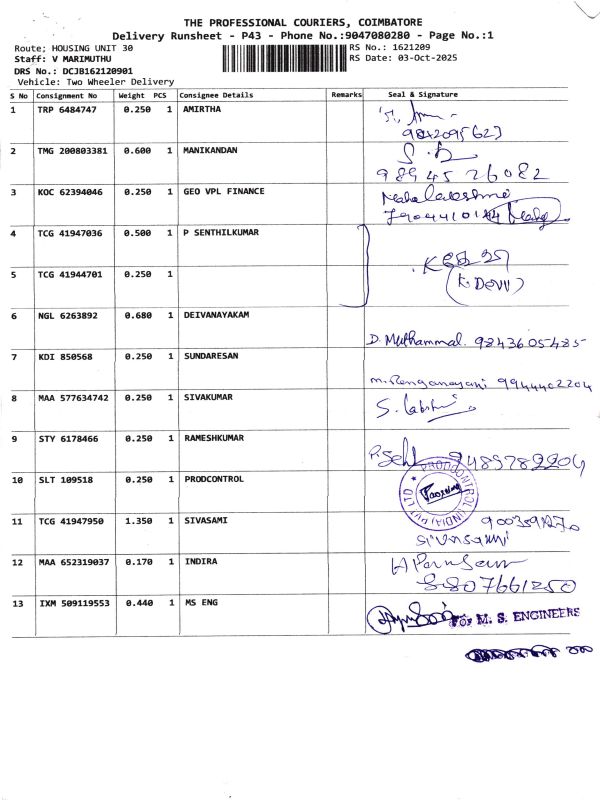 THE PROFESSIONAL COURIERS, COIMBATORE
Delivery Runsheet - P43 - Phone No.:9047080280 - Page No.:1
Route; HOUSING UNIT 30 RS No.: 1621209
Staff: V MARIMUTHU RS Date: 03-Oct-2025
DRS No.: DCJB162120901
Vehicle: Two Wheeler Delivery
S No Consignment No Weight PCS Consignee Details Remarks Seal & Signature
1 TRP 6484747 0.250 1 AMIRTHA
9842095623
2 TMG 200803381 0.600 1 MANIKANDAN
9894526082
3 KOC 62394046 0.250 1 GEO VPL FINANCE Mahalakshmi
4 TCG 41947036 0.500 1 P SENTHILKUMAR
5 TCG 41944701 0.250 1
(K. Devi)
6 NGL 6263892 0.680 1 DEIVANAYAKAM
D. Muthammal. 9843605485
7 KDI 850568 0.250 1 SUNDARESAN
m. Renganayaki 9944402204
8 MAA 577634742 0.250 1 SIVAKUMAR S. Lakshmi
9 STY 6178466 0.250 1 RAMESHKUMAR
10 SLT 109518 0.250 1 PRODCONTROL PRODCONTROL (INDIA) PVT LTD
11 TCG 41947950 1.350 1 SIVASAMI
Sivasami
12 MAA 652319037 0.170 1 INDIRA
8807661250
13 IXM 509119553 0.440 1 MS ENG For M. S. ENGINEERS